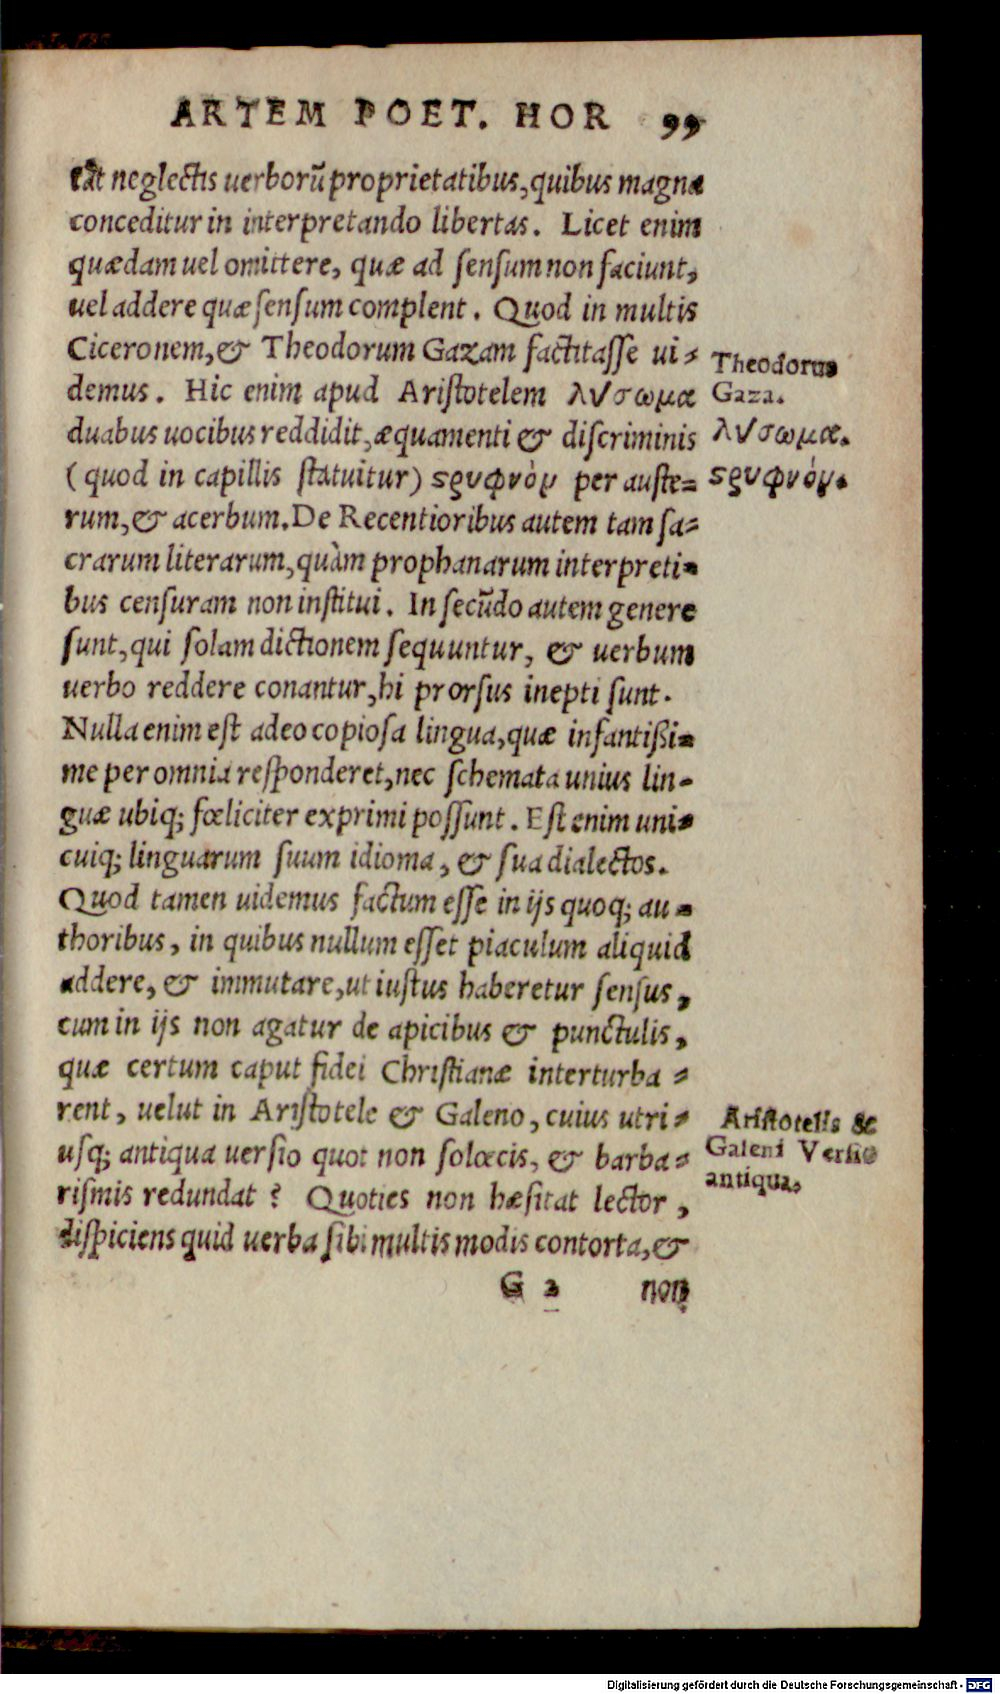 ARTEM POET. HOR 99
neglectis uerborũ proprietatibus, quibus magna
conceditur in interpretando libertas. Licet enim
quædam uel omittere, quæ ad ſenſum non faciunt,
uel addere quæ ſenſum complent. Quod in multis
Ciceronem, & Theodorum Gazam factitaſſe ui-
demus. Hic enim apud Ariſtotelem λύσωμα
duabus uocibus reddidit, æquamenti & diſcriminis
(quod in capillis ſtatuitur) ςρυφνὸν per auſte-
rum, & acerbum. De Recentioribus autem tam ſa-
crarum literarum, quàm prophanarum interpreti-
bus cenſuram non inſtitui. In ſecũdo autem genere
ſunt, qui ſolam dictionem ſequuntur, & uerbum
uerbo reddere conantur, hi prorſus inepti ſunt.
Nulla enim eſt adeo copioſa lingua, quæ infantißi-
me per omnia reſponderet, nec ſchemata unius lin-
guæ ubiq; fœliciter exprimi poſſunt. Eſt enim uni-
cuiq; linguarum ſuum idioma, & ſua dialectos.
Quod tamen uidemus factum eſſe in ijs quoq; au-
thoribus, in quibus nullum eſſet piaculum aliquid
addere, & immutare, ut iuſtus haberetur ſenſus,
cum in ijs non agatur de apicibus & punctulis,
quæ certum caput fidei Chriſtianæ interturba-
rent, uelut in Ariſtotele & Galeno, cuius utri-
uſq; antiqua uerſio quot non ſolœcis, & barba-
riſmis redundat? Quoties non hæſitat lector,
diſpiciens quid uerba ſibi multis modis contorta, &
G 2 non
Theodorus
Gaza.
λύσωμα.
ςρυφνόν.
Ariſtotelis &
Galeni Verſio
antiqua.
Digitalisierung gefördert durch die Deutsche Forschungsgemeinschaft - DFG